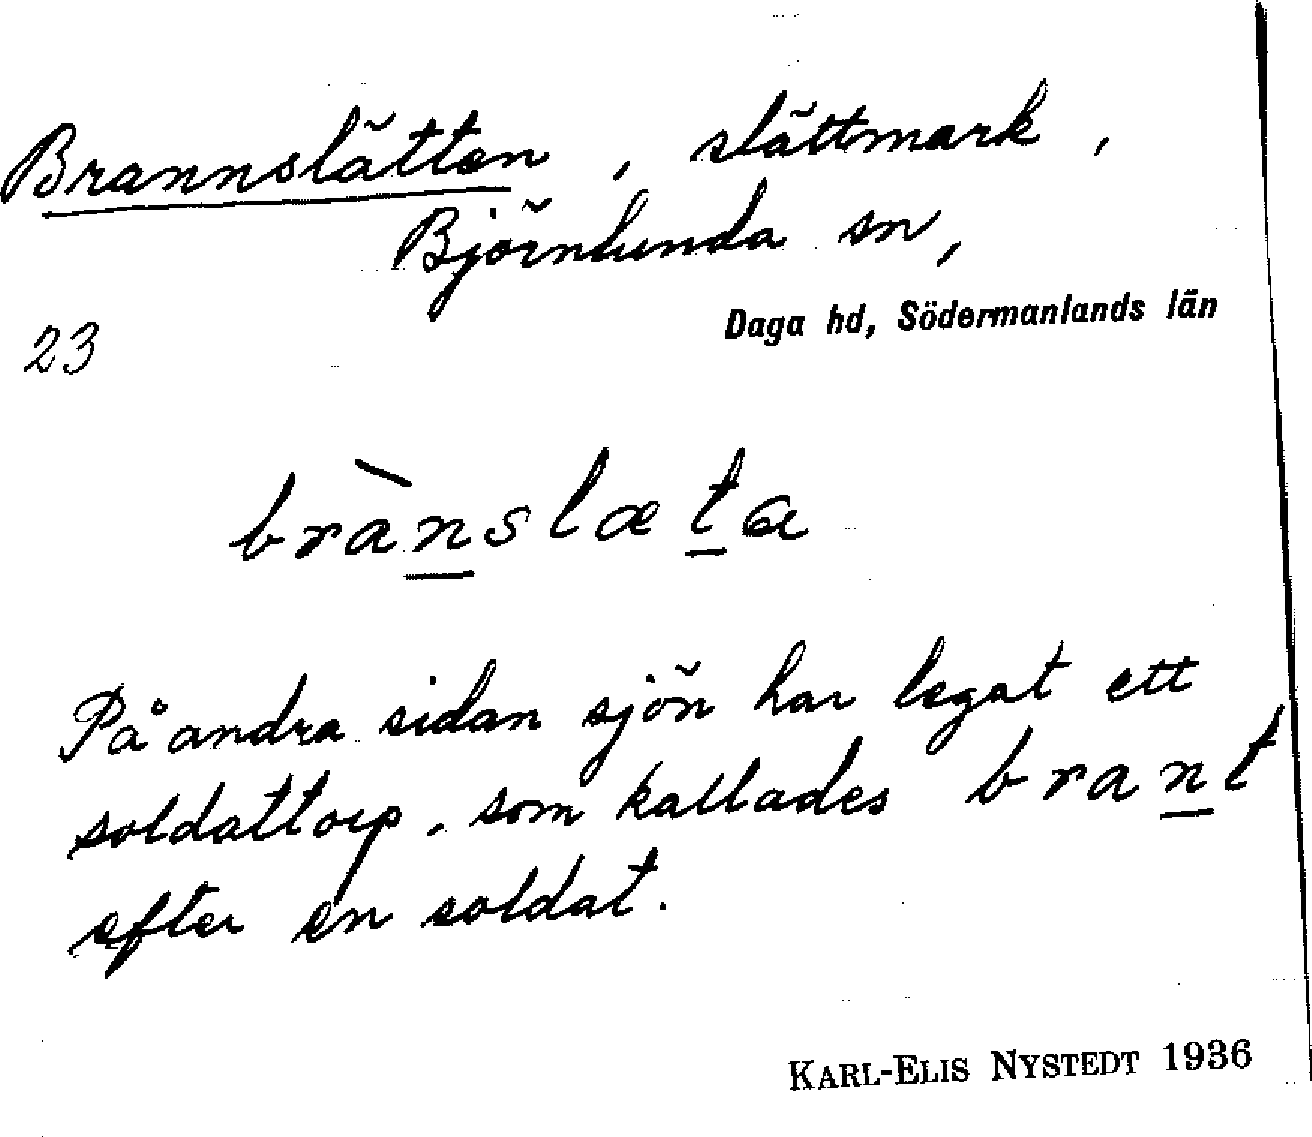 Brannslätten, slättmark,
Björnlunda sn,
Daga hd, Södermanlands län
23
brànslæta
På andra sidan sjön har legat ett
soldattorp, som kallades brant
efter en soldat.
KARL-ELIS NYSTEDT 1936